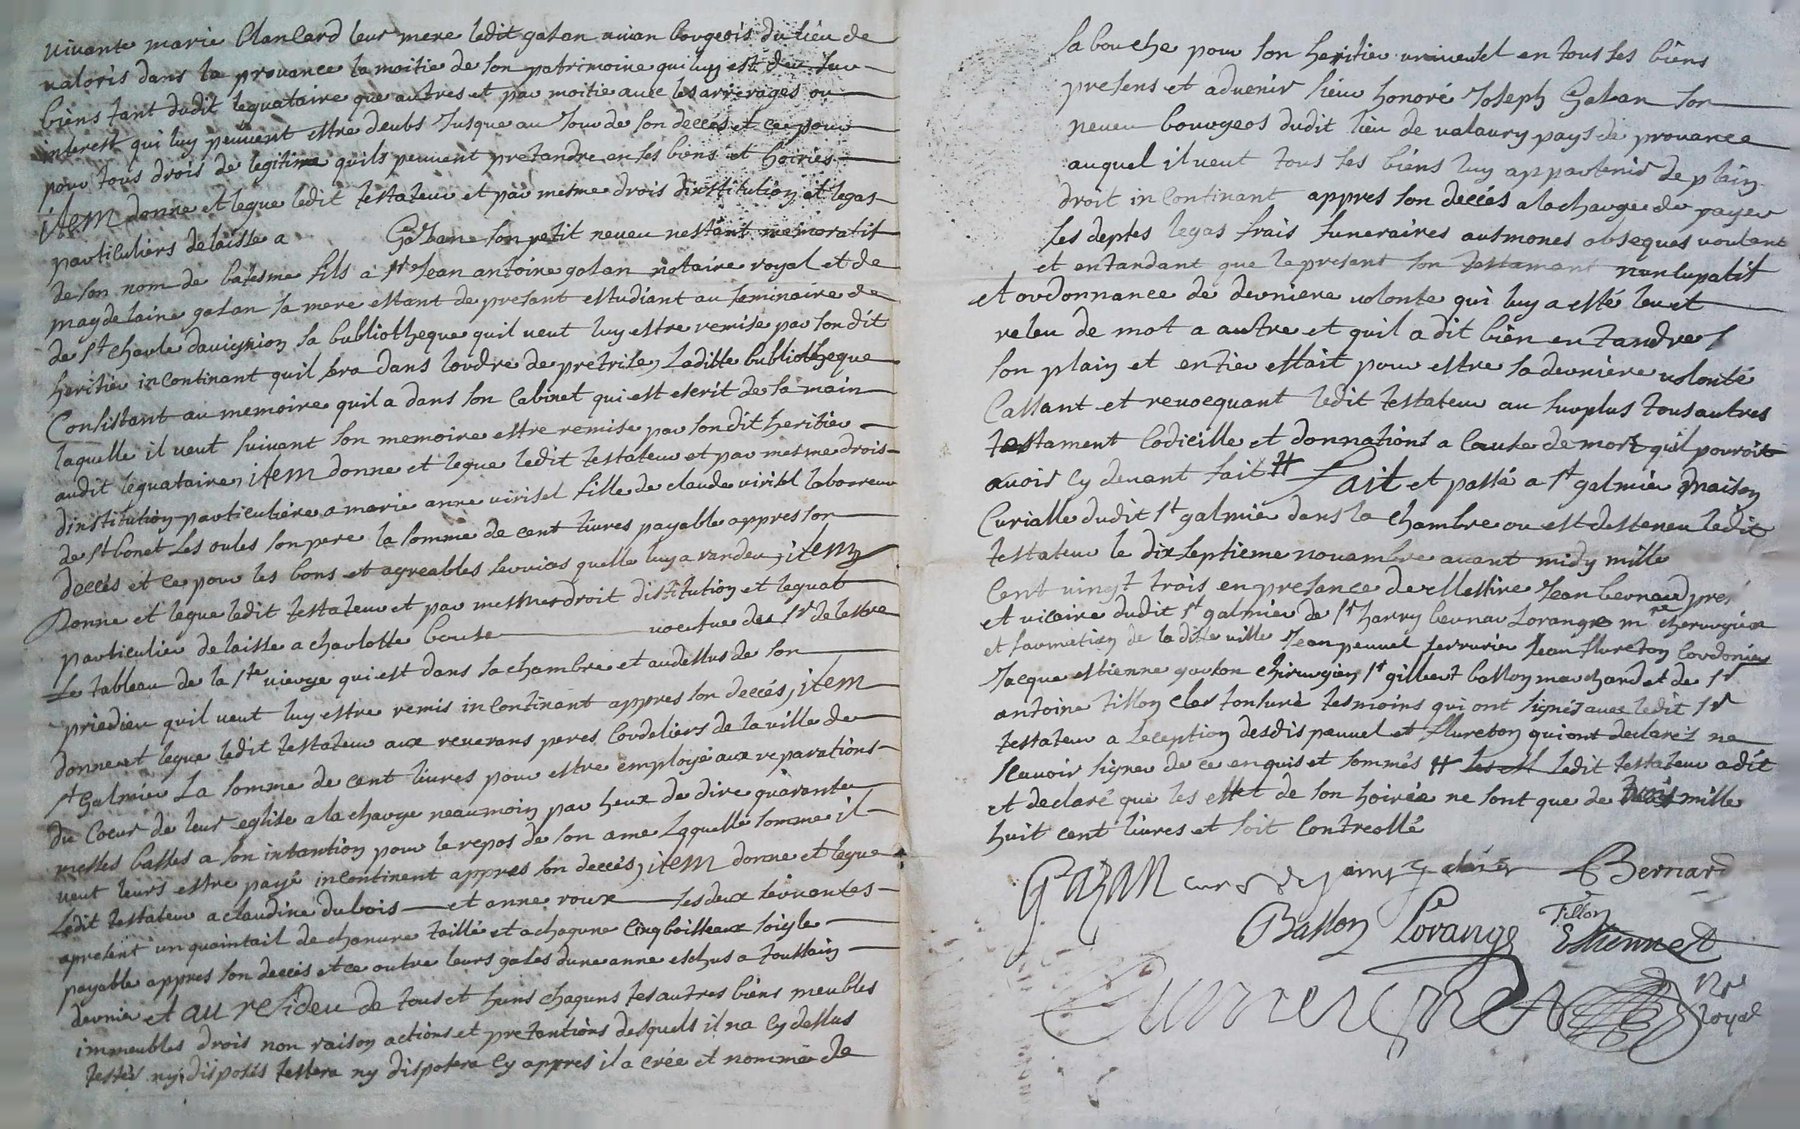 vivante marie blancard leur mere ledit gasan aisan bourgeois du lieu de
valoris dans la provance la moitie de son patrimoine qui luy est deu sur
biens tant dudit leguataire que autres et par moitie avec les arrerages ou
interest qui luy peuvent estre deubs Jusque au Jour de son decces et ce pour
pour tous drois de legitime quils peuvent pretandre en ses biens et hoiries
item donne et legue ledit testateur et par mesme drois dinstitution et legas
particuliers delaisse a Gasan son petit neveu nestant memoratif
de son nom de batesme fils a sr Jean antoine gasan notaire royal et de
magdelaine gasan sa mere estant de presant estudiant au seminaire de
de st charle davignion sa bubliotheque quil veut luy estre remise par son dit
heritier incontinant quil sera dans lordre de pretrise, Laditte bubliotheque
Consistant au memoire quil a dans son Cabinet qui est escrit de sa main
laquelle il veut suivant son memoire estre remise par son dit heritier
audit leguataire, item donne et legue ledit testateur et par mesme drois
dinstitution particuliere a marie anne virisel fille de claude virisel laboureur
de st bonet Les oules son pere la somme de cent livres payable appres son
decces et ce pour les bons et agreables services quelle luy a randeu, item
Donne et legue ledit testateur et par mesme droit distitution et leguat
particulier delaisse a charlotte boute voeufue des sr de lestre
Le tableau de la ste vierge qui est dans sa chambre et audessus de son
priedieu quil veut luy estre remis incontinent appres son decces, item
donne et legue ledit testateur aux reverans peres Cordeliers de la ville de
st Galmier La somme de cent livres pour estre employé aux reparations
du Coeur de leur eglise a la charge neaumoin par heux de dire quarante
messes basses a son intantion pour le repos de son ame Laquelle somme il
veut leurs estre payé incontinent appres son decces, item donne et legue
Ledit testateur a claudine dubois et anne roux ses deux servantes
apresent un quaintail de chanvre taillé et a chagune Cinq boisseaux soigle
payable appres son decces et ce outre leurs gages dune anne eschus a toussain
dernier et au resideu de tous et huns chaguns ses autres biens meubles
immeubles drois non raison actions et pretantions desquels il na cy dessus
testés ny disposés testera ny disposera cy appres il a crée et nommé de
sa bouche pour son heritier universel en tous ses biens
presens et advenir sieur honoré Joseph Gasan son
neveu bourgeos dudit lieu de valaury pays de provance
auquel il veut tous ses biens luy appartenir de plain
droit incontinant appres son decces a la charge de payer
ses deptes legas frais funeraires aumones obseques voulant
et entandant que le present son testament nuncupatif
et ordonnance de derniere volonte qui luy a esté leu et
releu de mot a autre et quil a dit bien entandre
son plain et entier estait pour estre sa derniere volonté
Cassant et revocquant ledit testateur au surplus tous autres
testament Codicille et donnations a cause de mort quil pourroit
avoir cy devant fait # Fait et passé a st galmier maison
Curialle dudit st galmier dans la chambre ou est destenu ledit
testateur le dix septieme novambre avant midy mille
Cent vingt trois en presance de Messire Jean bernard pre
et vicaire dudit st galmier de sr harry bernar Lorange me cherurgien
et formation de la dite ville Jean peuvel serrurier Jean flureton Cordonier
Jacque estienne gouton chirurgien sr gilbert basson marchand et de sr
antoine tillon Cler tonsuré tesmoins qui ont signés avec ledit sr
testateur a lexception desdis peuvel et flureton qui ont declarés ne
scavoir signer de ce enquis et sommés # ledit testateur a dit
et declaré que les effet de son hoirée ne sont que de trois mille
huit cent livres et soit Controllé
GAZAN curé de Bernard
Basson Lorange Fillon
Estienne
Nre
Royal